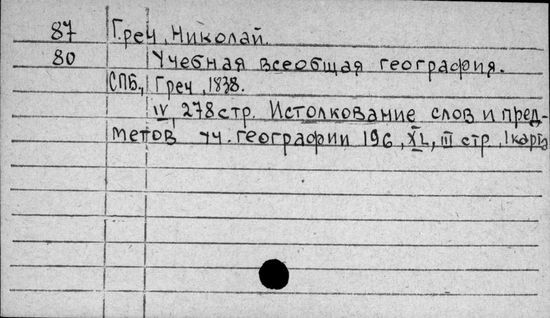 87 Греч, Николай.
80 Учебная всеобщая география.
СПБ., Греч, 1838.
IV, 278 стр. Истолкование слов и пред-
метов уч. географии 196, XL, III стр., 1 карта